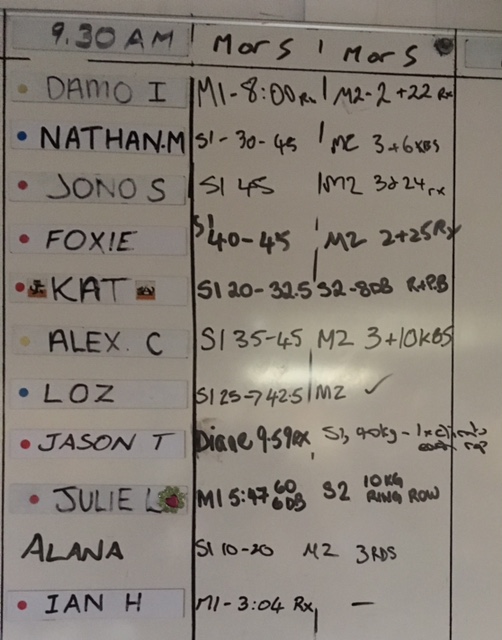 9.30 AM MorS | MorS
DAMO I M1-8:00 Rx | M2-2+22 Rx
NATHAN.M S1-30-45 | M2 3+6KBS
JONO S S1 45 | M2 3+24 rx
FOXIE S1 40-45 | M2 2+25 Rx
KAT S1 20-32.5 S2-8DB R+PB
ALEX. C S1 35-45 | M2 3+10KBS
LOZ S1 25→42.5 | M2 ✓
JASON T Diane 9:59RX, S1, 90kg - 1x
JULIE L M1 5:47 60 6DB S2 10KG RING ROW
ALANA S1 10-20 M2 3RDS
IAN H M1-3:04 Rx | —